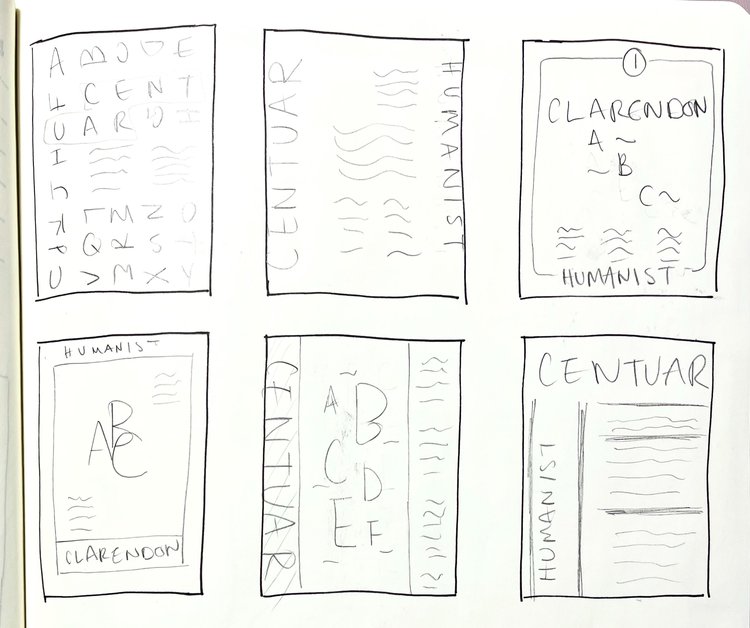 A B C D E
F C E N T
U A R D H
I
J
K L M N O
P Q R S T
U V M X Y
CENTUAR
HUMANIST
1
CLARENDON
A
B
C
HUMANIST
HUMANIST
ABC
CLARENDON
CENTUAR
A B
C D
E F
CENTUAR
HUMANIST